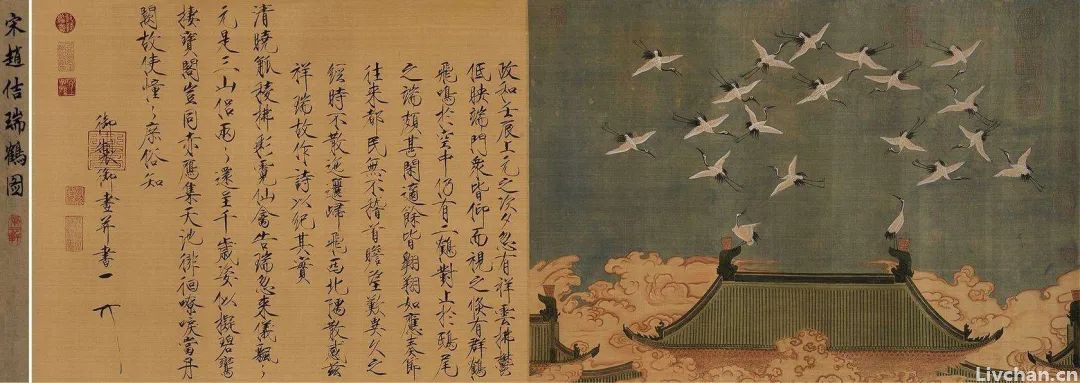 政和壬辰上元之次夕忽有祥雲拂鬱
低映端門衆皆仰而視之倏有群鶴
飛鳴於空中仍有二鶴對止於鴟尾
之端頗甚閑適餘皆翱翔如應奏節
往來都民無不稽首瞻望歎異久之
經時不散迤邐歸飛西北隅散感茲
祥瑞故作詩以紀其實
清曉觚稜拂彩霓仙禽告瑞忽來儀飄々
元是三山侶兩々還呈千歲姿似擬碧鸞
棲寶閣豈同赤鴈集天池徘徊嘹唳當丹
闕故使憧々庶俗知
御製御畫并書
宋趙佶瑞鶴图
Livchan.cn